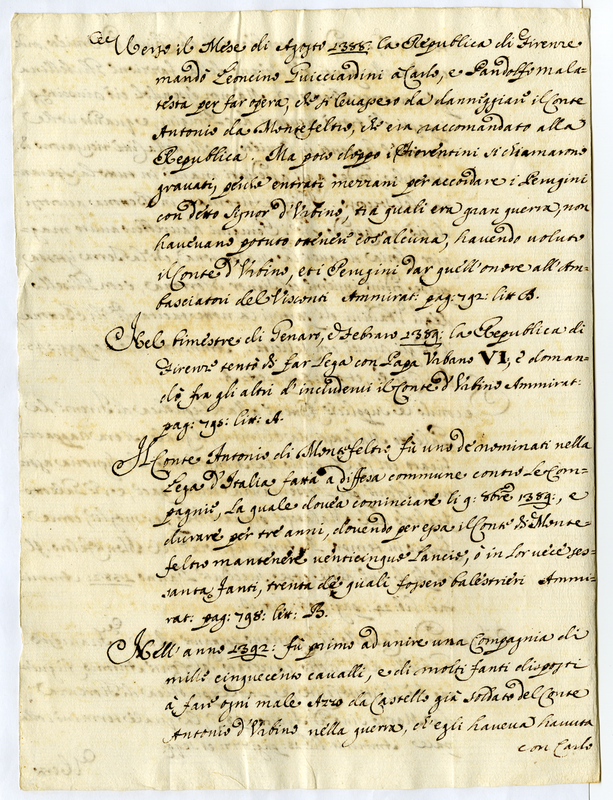 Verso il Mese di Agosto 1388: la Republica di Firenze
mandò Leoncino Guicciardini à Carlo, e Pandolfo Mala=
testa per far opera, che si levassero da danniggiare il Conte
Antonio da Montefeltro, che era raccomandato alla
Republica. Ma poco doppo i Fiorentini si chiamarono
gravati, perche entrati mezzani per accordare i Perugini
con detto Signor d'Urbino, tra quali era gran guerra, non
havevano potuto ottenere cos'alcuna, havendo voluto
il Conte d'Urbino, et i Perugini dar quell'onore all'Am=
basciatori del Visconti Ammirat: pag: 792: litt B.
Nel bimestre di Genaro, e Febraro 1389: la Republica di
Firenze tentò di far Lega con Papa Urbano VI, e doman=
dò fra gli altri d'includervi il Conte d'Urbino Ammirat:
pag: 795: litt: A.
Il Conte Antonio di Montefeltro fù uno de nominati nella
Lega d'Italia fatta a diffesa commune contro le Com=
pagnie, la quale dovea cominciare li 9: 8bre 1389:, e
durare per tre anni, dovendo per essa il Conte di Monte=
feltro mantenere venticinque Lancie, ò in lor vece ses=
santa fanti, trenta de quali fossero balestrieri Ammi=
rat: pag: 798: litt: B.
Nell'anno 1392: fù primo ad unire una Compagnia di
mille cinquecento cavalli, e di molti fanti disposti
à fare ogni male Azzo da Castello già soldato del Conte
Antonio d'Urbino nella guerra, ch'egli haveva havuta
con Carlo